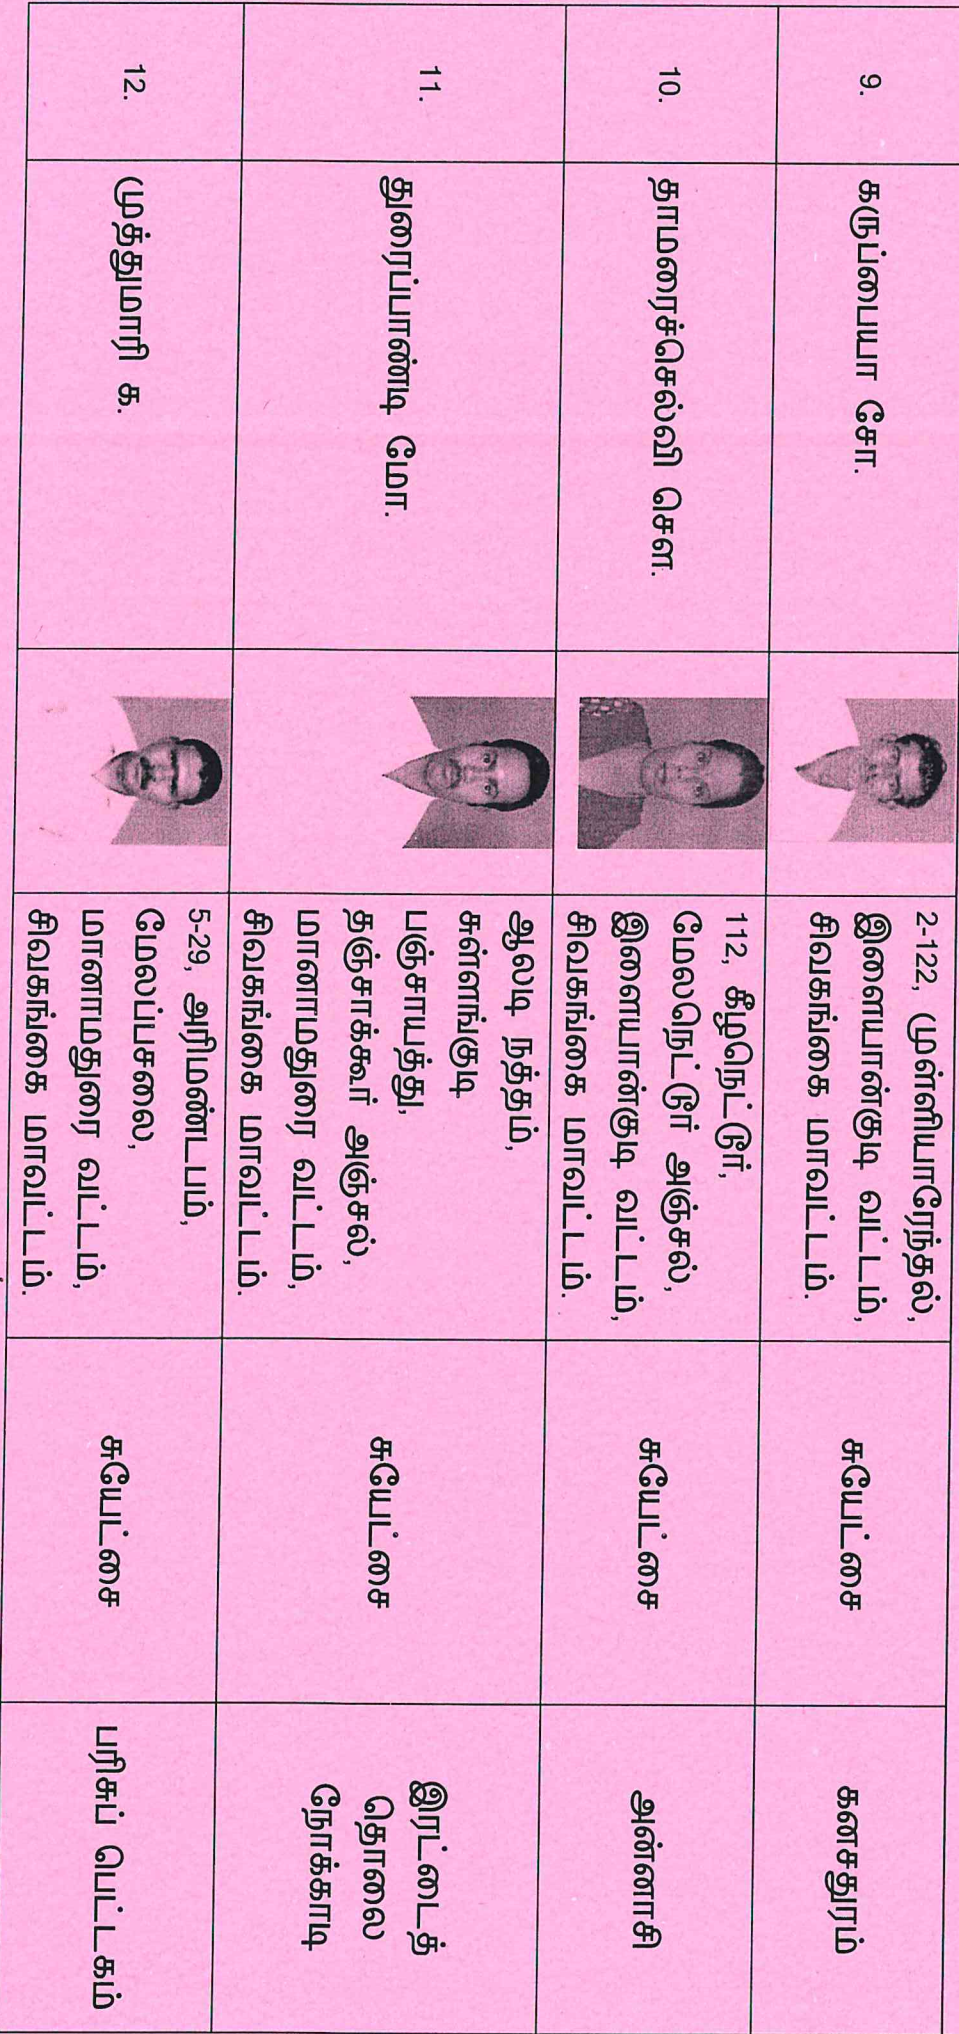 9.
கருப்பையா சோ.
2-122, முள்ளியாரேந்தல்,
இளையான்குடி வட்டம்,
சிவகங்கை மாவட்டம்.
சுயேட்சை
கனசதுரம்
10.
தாமரைச்செல்வி செள.
112, கீழநெட்டூர்,
மேலநெட்டூர் அஞ்சல்,
இளையான்குடி வட்டம்,
சிவகங்கை மாவட்டம்.
சுயேட்சை
அன்னாசி
11.
துரைப்பாண்டி மோ.
ஆலடி நத்தம்,
கள்ளங்குடி
பஞ்சாயத்து,
தஞ்சாக்கூர் அஞ்சல்,
மானாமதுரை வட்டம்,
சிவகங்கை மாவட்டம்.
சுயேட்சை
இரட்டைத்
தொலை
நோக்காடி
12.
முத்துமாரி க.
5-29, அரிமண்டபம்,
மேலப்பசலை,
மானாமதுரை வட்டம்,
சிவகங்கை மாவட்டம்.
சுயேட்சை
பரிசுப் பெட்டகம்